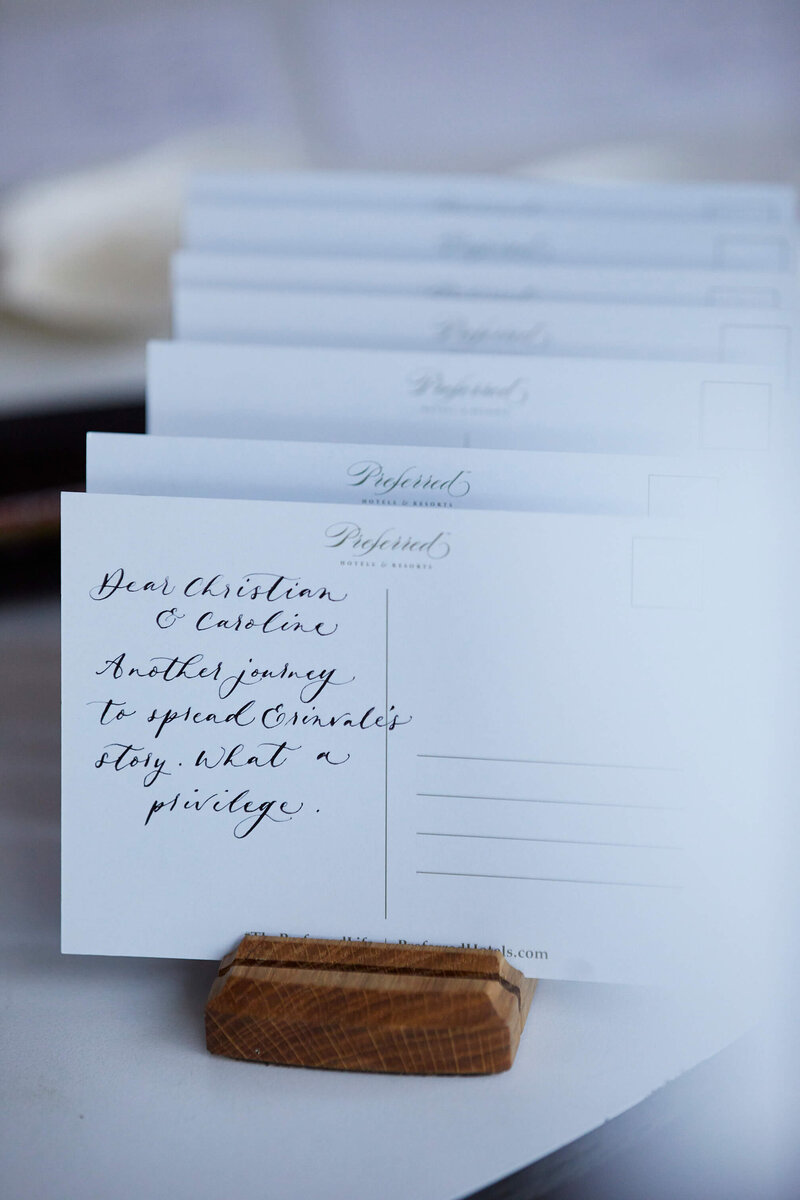 Preferred
Preferred
Preferred
HOTELS & RESORTS
Preferred
HOTELS & RESORTS
Dear Christian
& Caroline
Another journey
to spread Erinvale's
story. What a
privilege.
PreferredHotels.com